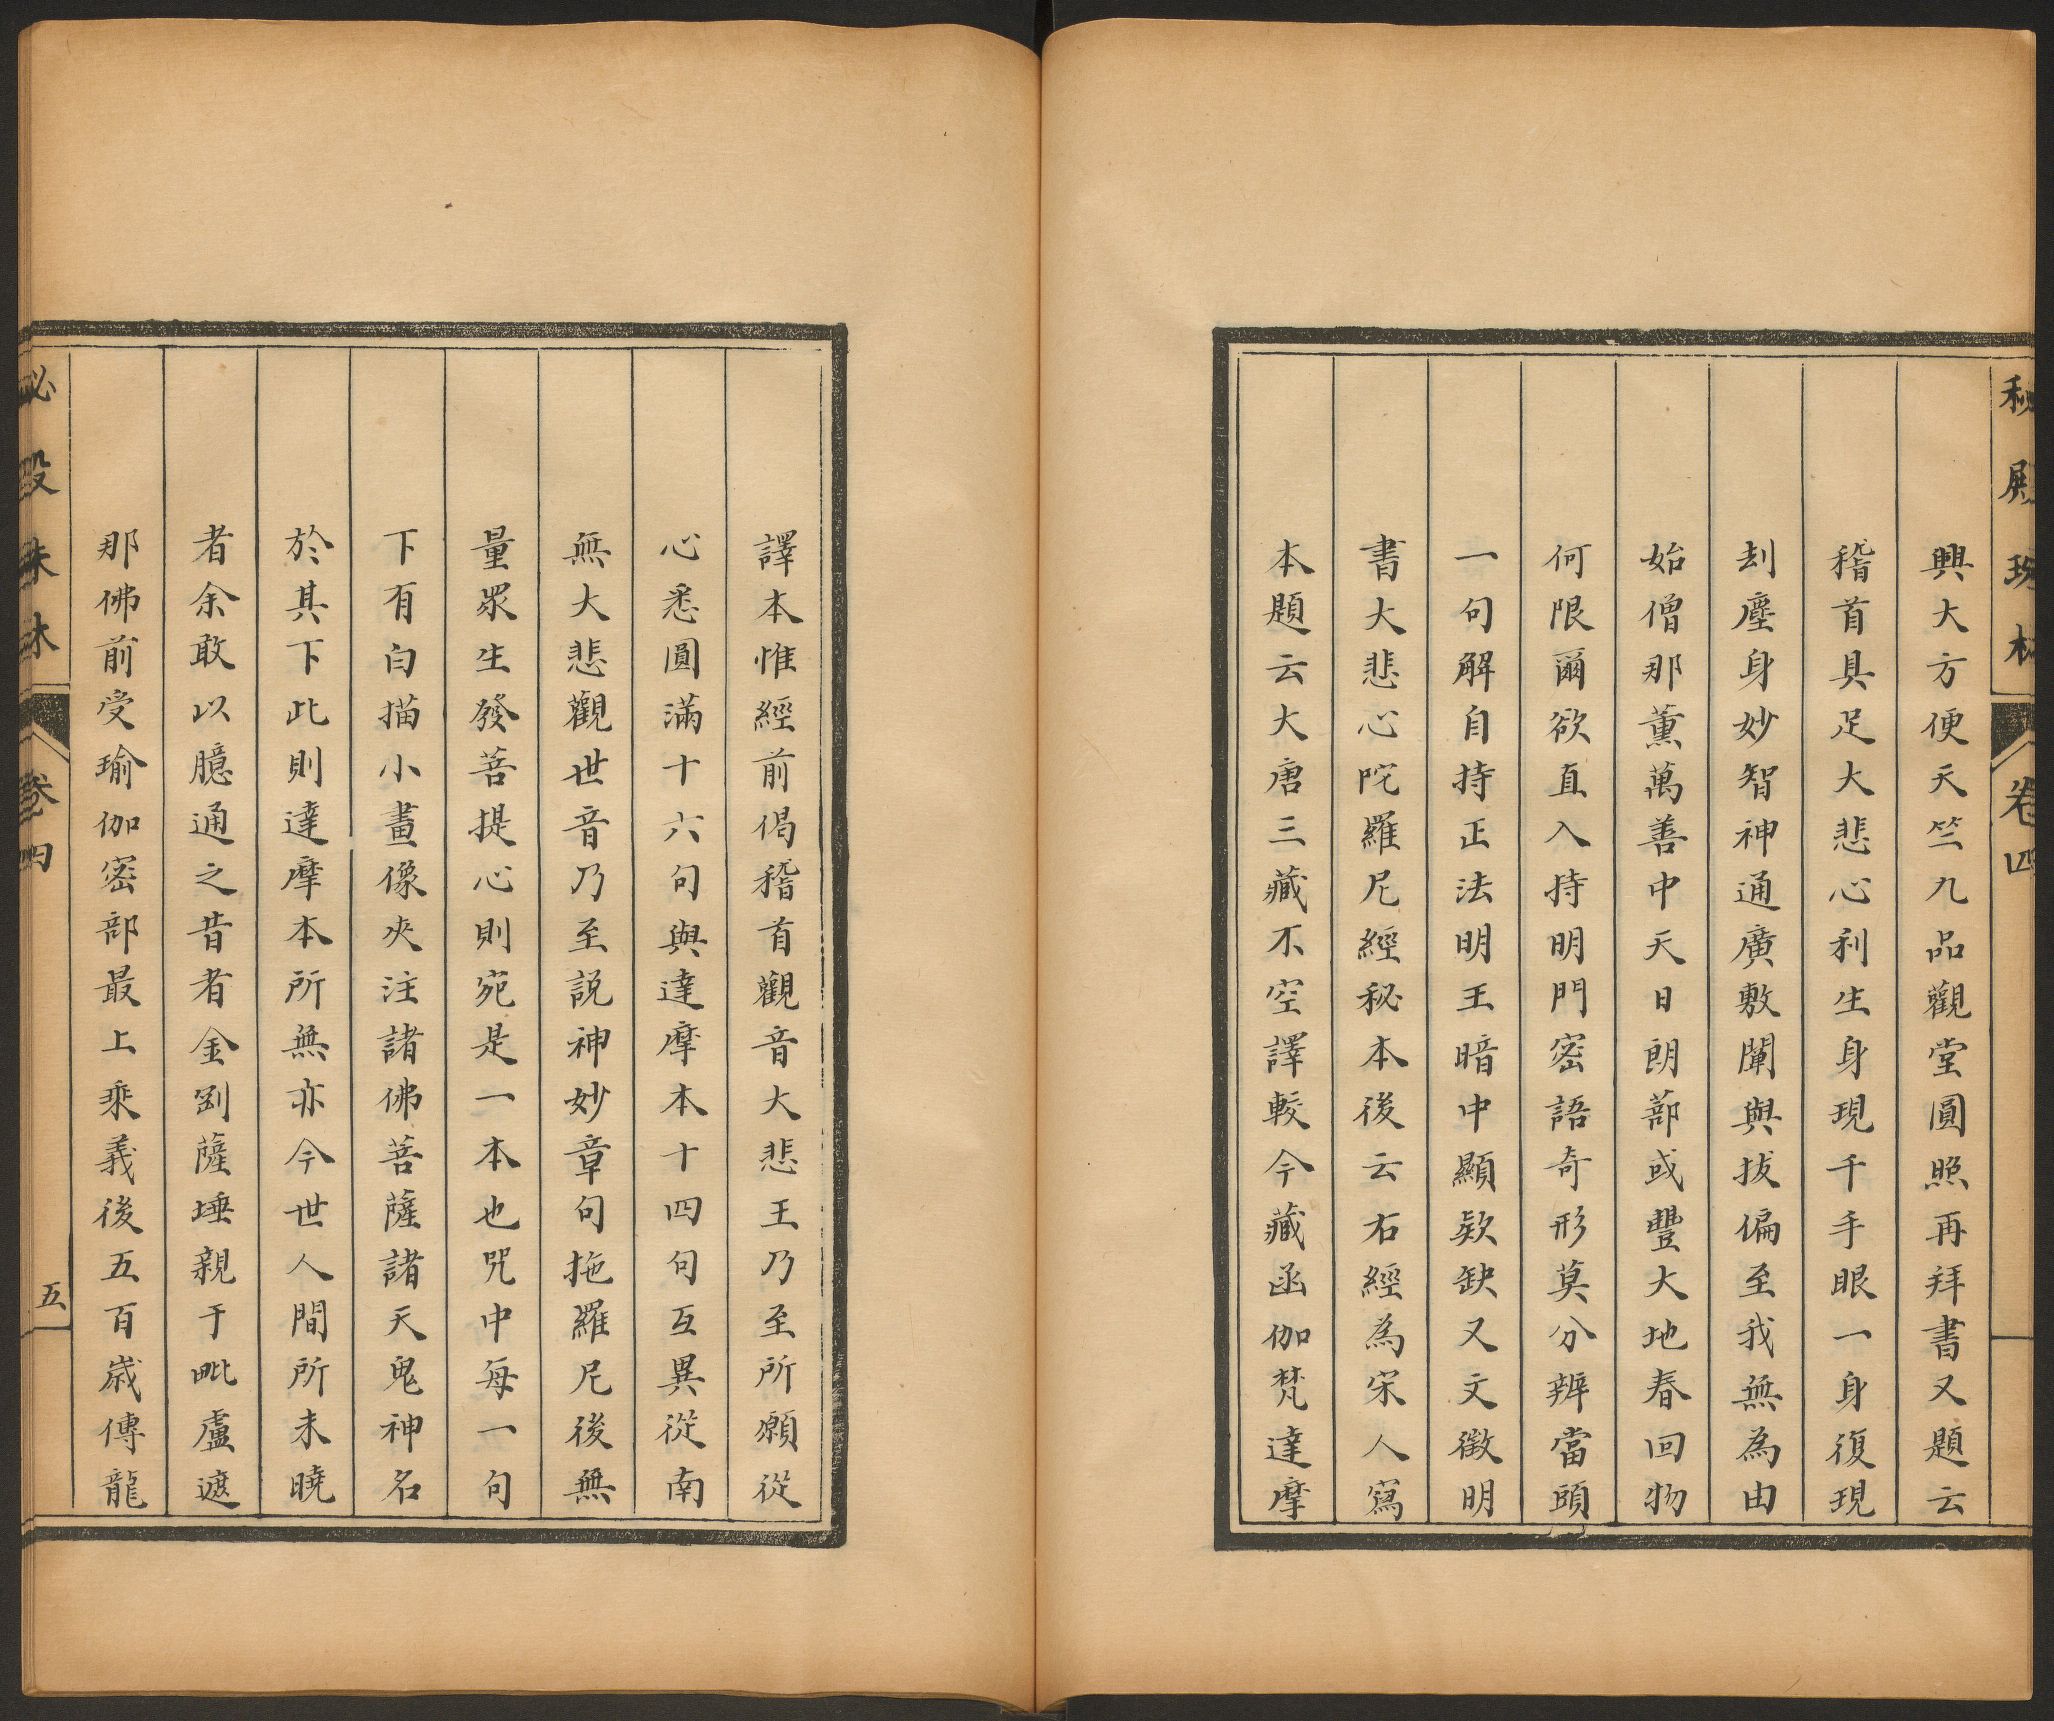 秘殿珠林 卷四
興大方便天竺九品觀堂圓照再拜書又題云
稽首具足大悲心利生身現千手眼一身復現
刦塵身妙智神通廣敷闡與拔偏至我無為由
始僧那薰萬善中天日朗蔀或豐大地春回物
何限爾欲直入持明門密語奇形莫分辨當頭
一句解自持正法明王暗中顯欵缺又文徵明
書大悲心陀羅尼經秘本後云右經為宋人寫
本題云大唐三藏不空譯較今藏函伽梵達摩
譯本惟經前偈稽首觀音大悲王乃至所願從
心悉圓滿十六句與達摩本十四句互異從南
無大悲觀世音乃至說神妙章句拖羅尼後無
量眾生發菩提心則宛是一本也咒中每一句
下有白描小畫像夾注諸佛菩薩諸天鬼神名
於其下此則達摩本所無亦今世人間所未曉
者余敢以臆通之昔者金剛薩埵親于毗盧遮
那佛前受瑜伽密部最上乘義後五百歲傳龍
秘殿珠林 卷四 五